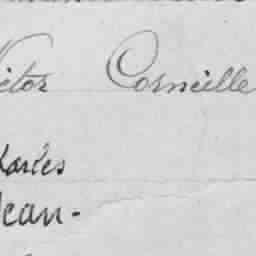 Victor Corneille
Charles
Jean-